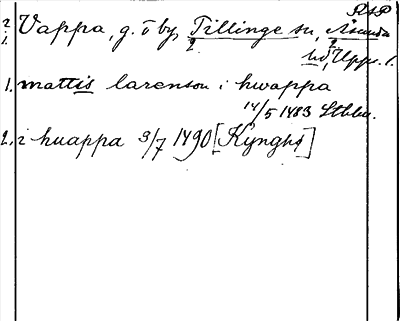 RSP
2 Vappa, g. o by, Tillinge sn, Åsunda
1. 2 2
hd, Upps. l.
1. mattis larenson i hwappa
14/5 1483 Sthlm.
2. i huappa 3/7 1490 [Kynghs]